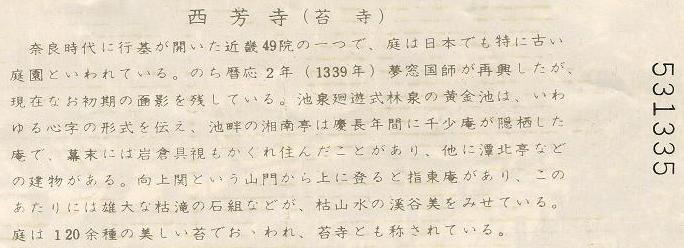 西芳寺（苔寺）
奈良時代に行基が開いた近畿49院の一つで、庭は日本でも特に古い
庭園といわれている。のち暦応2年（1339年）夢窓国師が再興したが、
現在なお初期の面影を残している。池泉廻遊式林泉の黄金池は、いわ
ゆる心字の形式を伝え、池畔の湘南亭は慶長年間に千少庵が隠栖した
庵で、幕末には岩倉具視もかくれ住んだことがあり、他に潭北亭など
の建物がある。向上関という山門から上に登ると指東庵があり、この
あたりには雄大な枯滝の石組などが、枯山水の溪谷美をみせている。
庭は120余種の美しい苔でおゝわれ、苔寺とも称されている。
531335